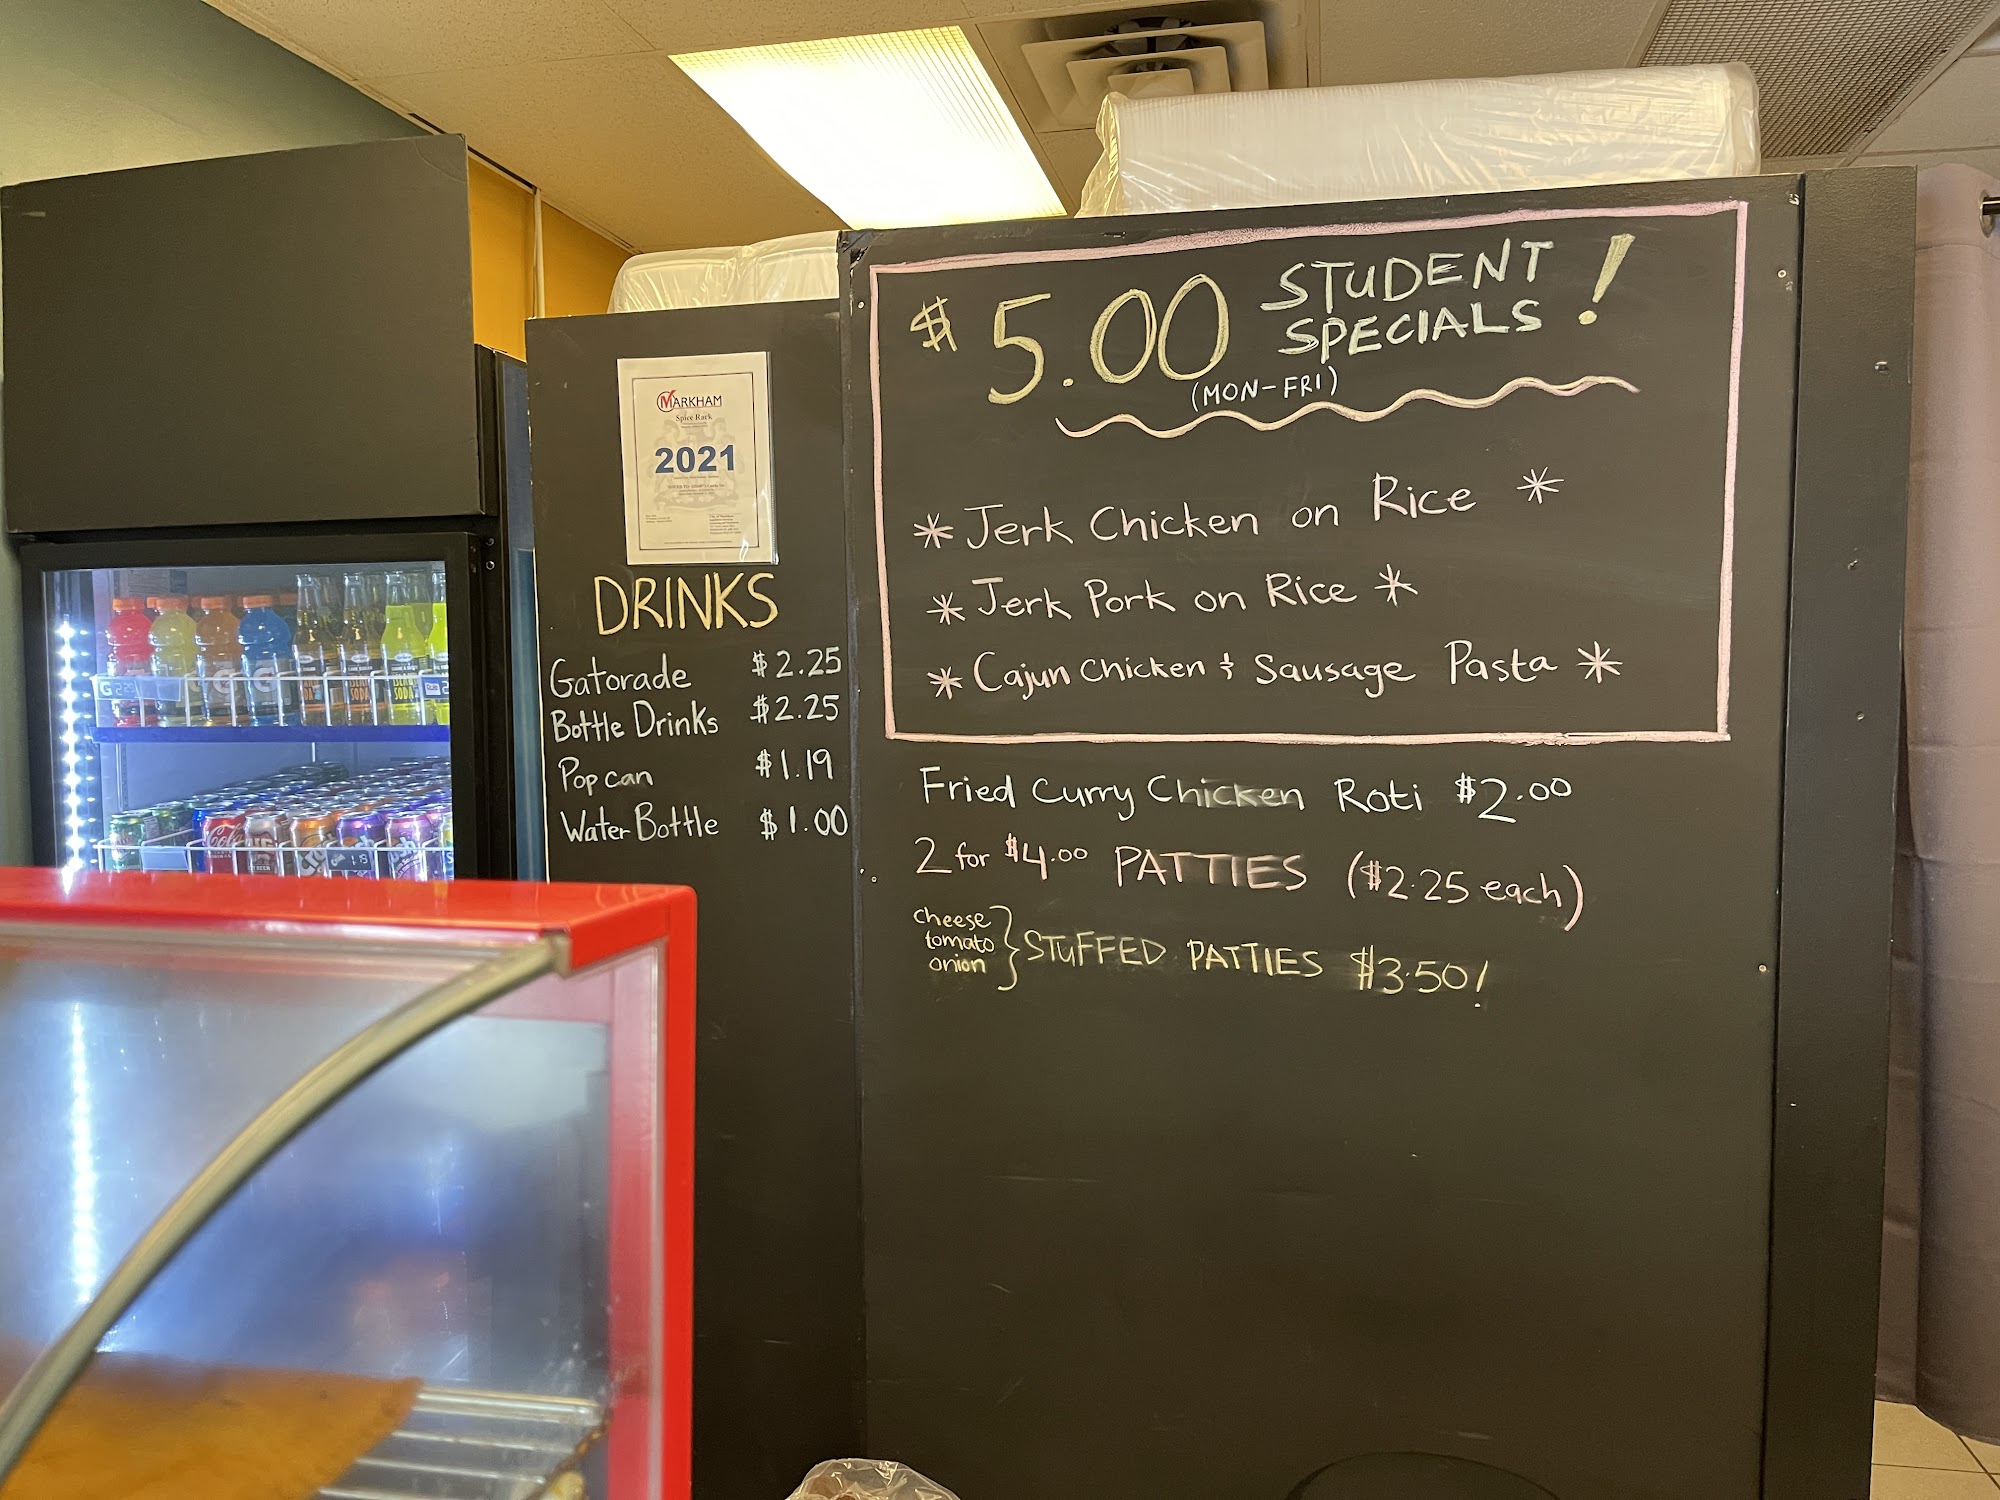 MARKHAM
Spice Rack
2021
DRINKS
Gatorade $2.25
Bottle Drinks $2.25
Pop can $1.19
Water Bottle $1.00
$5.00 STUDENT SPECIALS!
(MON-FRI)
* Jerk Chicken on Rice *
* Jerk Pork on Rice *
* Cajun Chicken & Sausage Pasta *
Fried Curry Chicken Roti $2.00
2 for $4.00 PATTIES ($2.25 each)
cheese
tomato
onion
} STUFFED PATTIES $3.50!
G
G
SODA
Coke
Crush